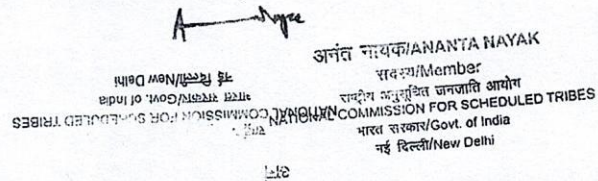 अनंत नायक/ANANTA NAYAK
सदस्य/Member
राष्ट्रीय अनुसूचित जनजाति आयोग
NATIONAL COMMISSION FOR SCHEDULED TRIBES
भारत सरकार/Govt. of India
नई दिल्ली/New Delhi
NATIONAL COMMISSION FOR SCHEDULED TRIBES
भारत सरकार/Govt. of India
नई दिल्ली/New Delhi